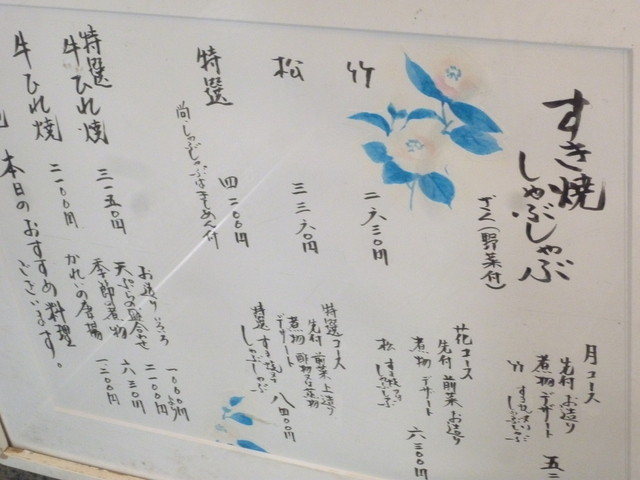 すき焼
しゃぶしゃぶ
ざく(野菜付)
竹 二六三〇円
松 三三六〇円
特選 四二〇〇円
尚、しゃぶしゃぶはきしめん付
特選
牛ひれ焼 三一五〇円
牛ひれ焼 二一〇〇円
月コース
先付 お造り
煮物 デザート
竹 すき焼又は
しゃぶしゃぶ
五二
花コース
先付 前菜 お造り
煮物 デザート
松 すき焼又は
しゃぶしゃぶ
六三〇〇円
特選コース
先付 前菜 上造り
煮物 酢物又は
デザート
特選 すき焼又は
しゃぶしゃぶ
八四〇〇円
お造りいろいろ 一〇〇〇円より
天ぷらの盛合せ 二一〇〇円
季節の煮物 六三〇円
かれいの唐揚 一二〇〇円
本日のおすすめ料理
ございます。